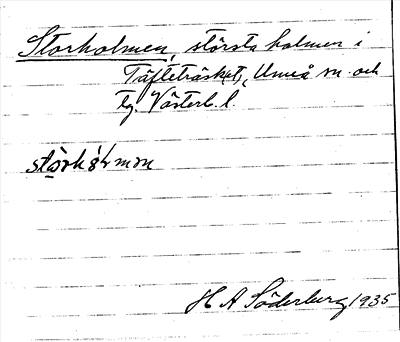 Storholmen, största holmen i
Täfteträsket, Umeå sn och
tg. Västerb. l.
H A Söderberg 1935